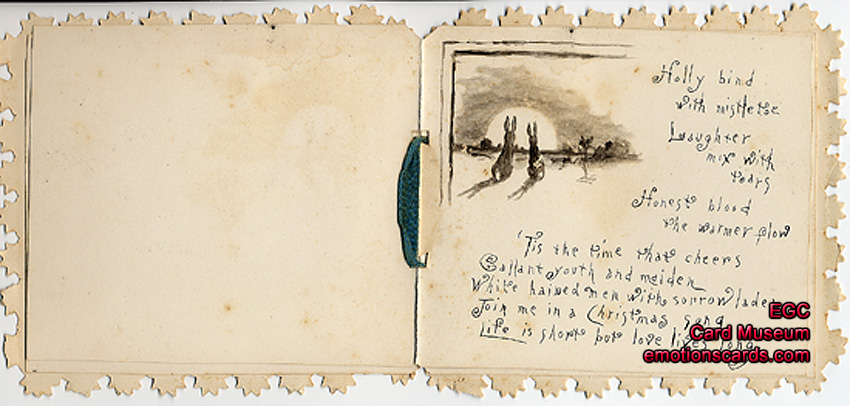 Holly bind
with mistletoe
Laughter
mix with
tears
Honest blood
the warmer flow
'Tis the time that cheers
Gallant youth and maiden
White haired men with sorrow laden
Join me in a Christmas song
Life is short but love lives long
EGC
Card Museum
emotionscards.com